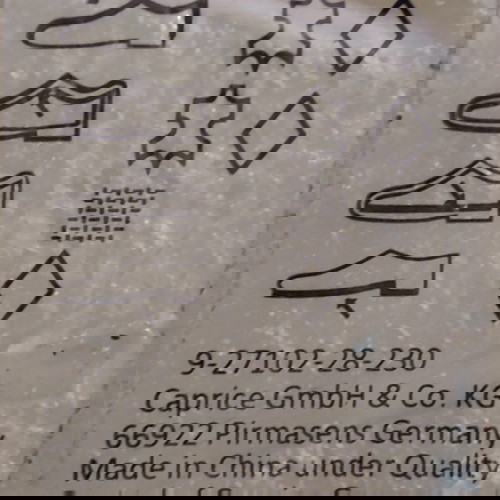 9-27102-28-230
Caprice GmbH & Co. KG
66922 Pirmasens German
Made in China under Quality